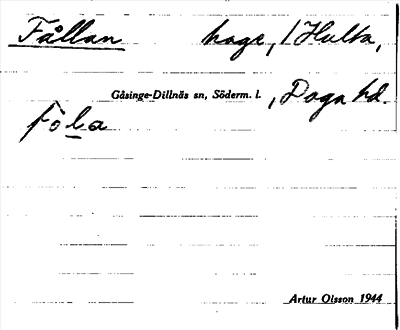 Fållan hage, 1 Hulta,
Gåsinge-Dillnäs sn, Söderm. l., Daga hd.
fo̊la
Artur Olsson 1944